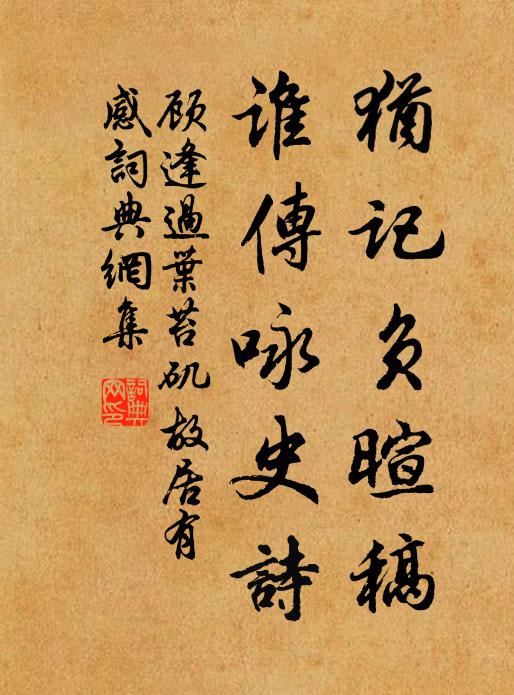 猶記負暄稿
誰傳咏史詩
顾逢過葉苔矶故居有
感詞典網集
詞典網印